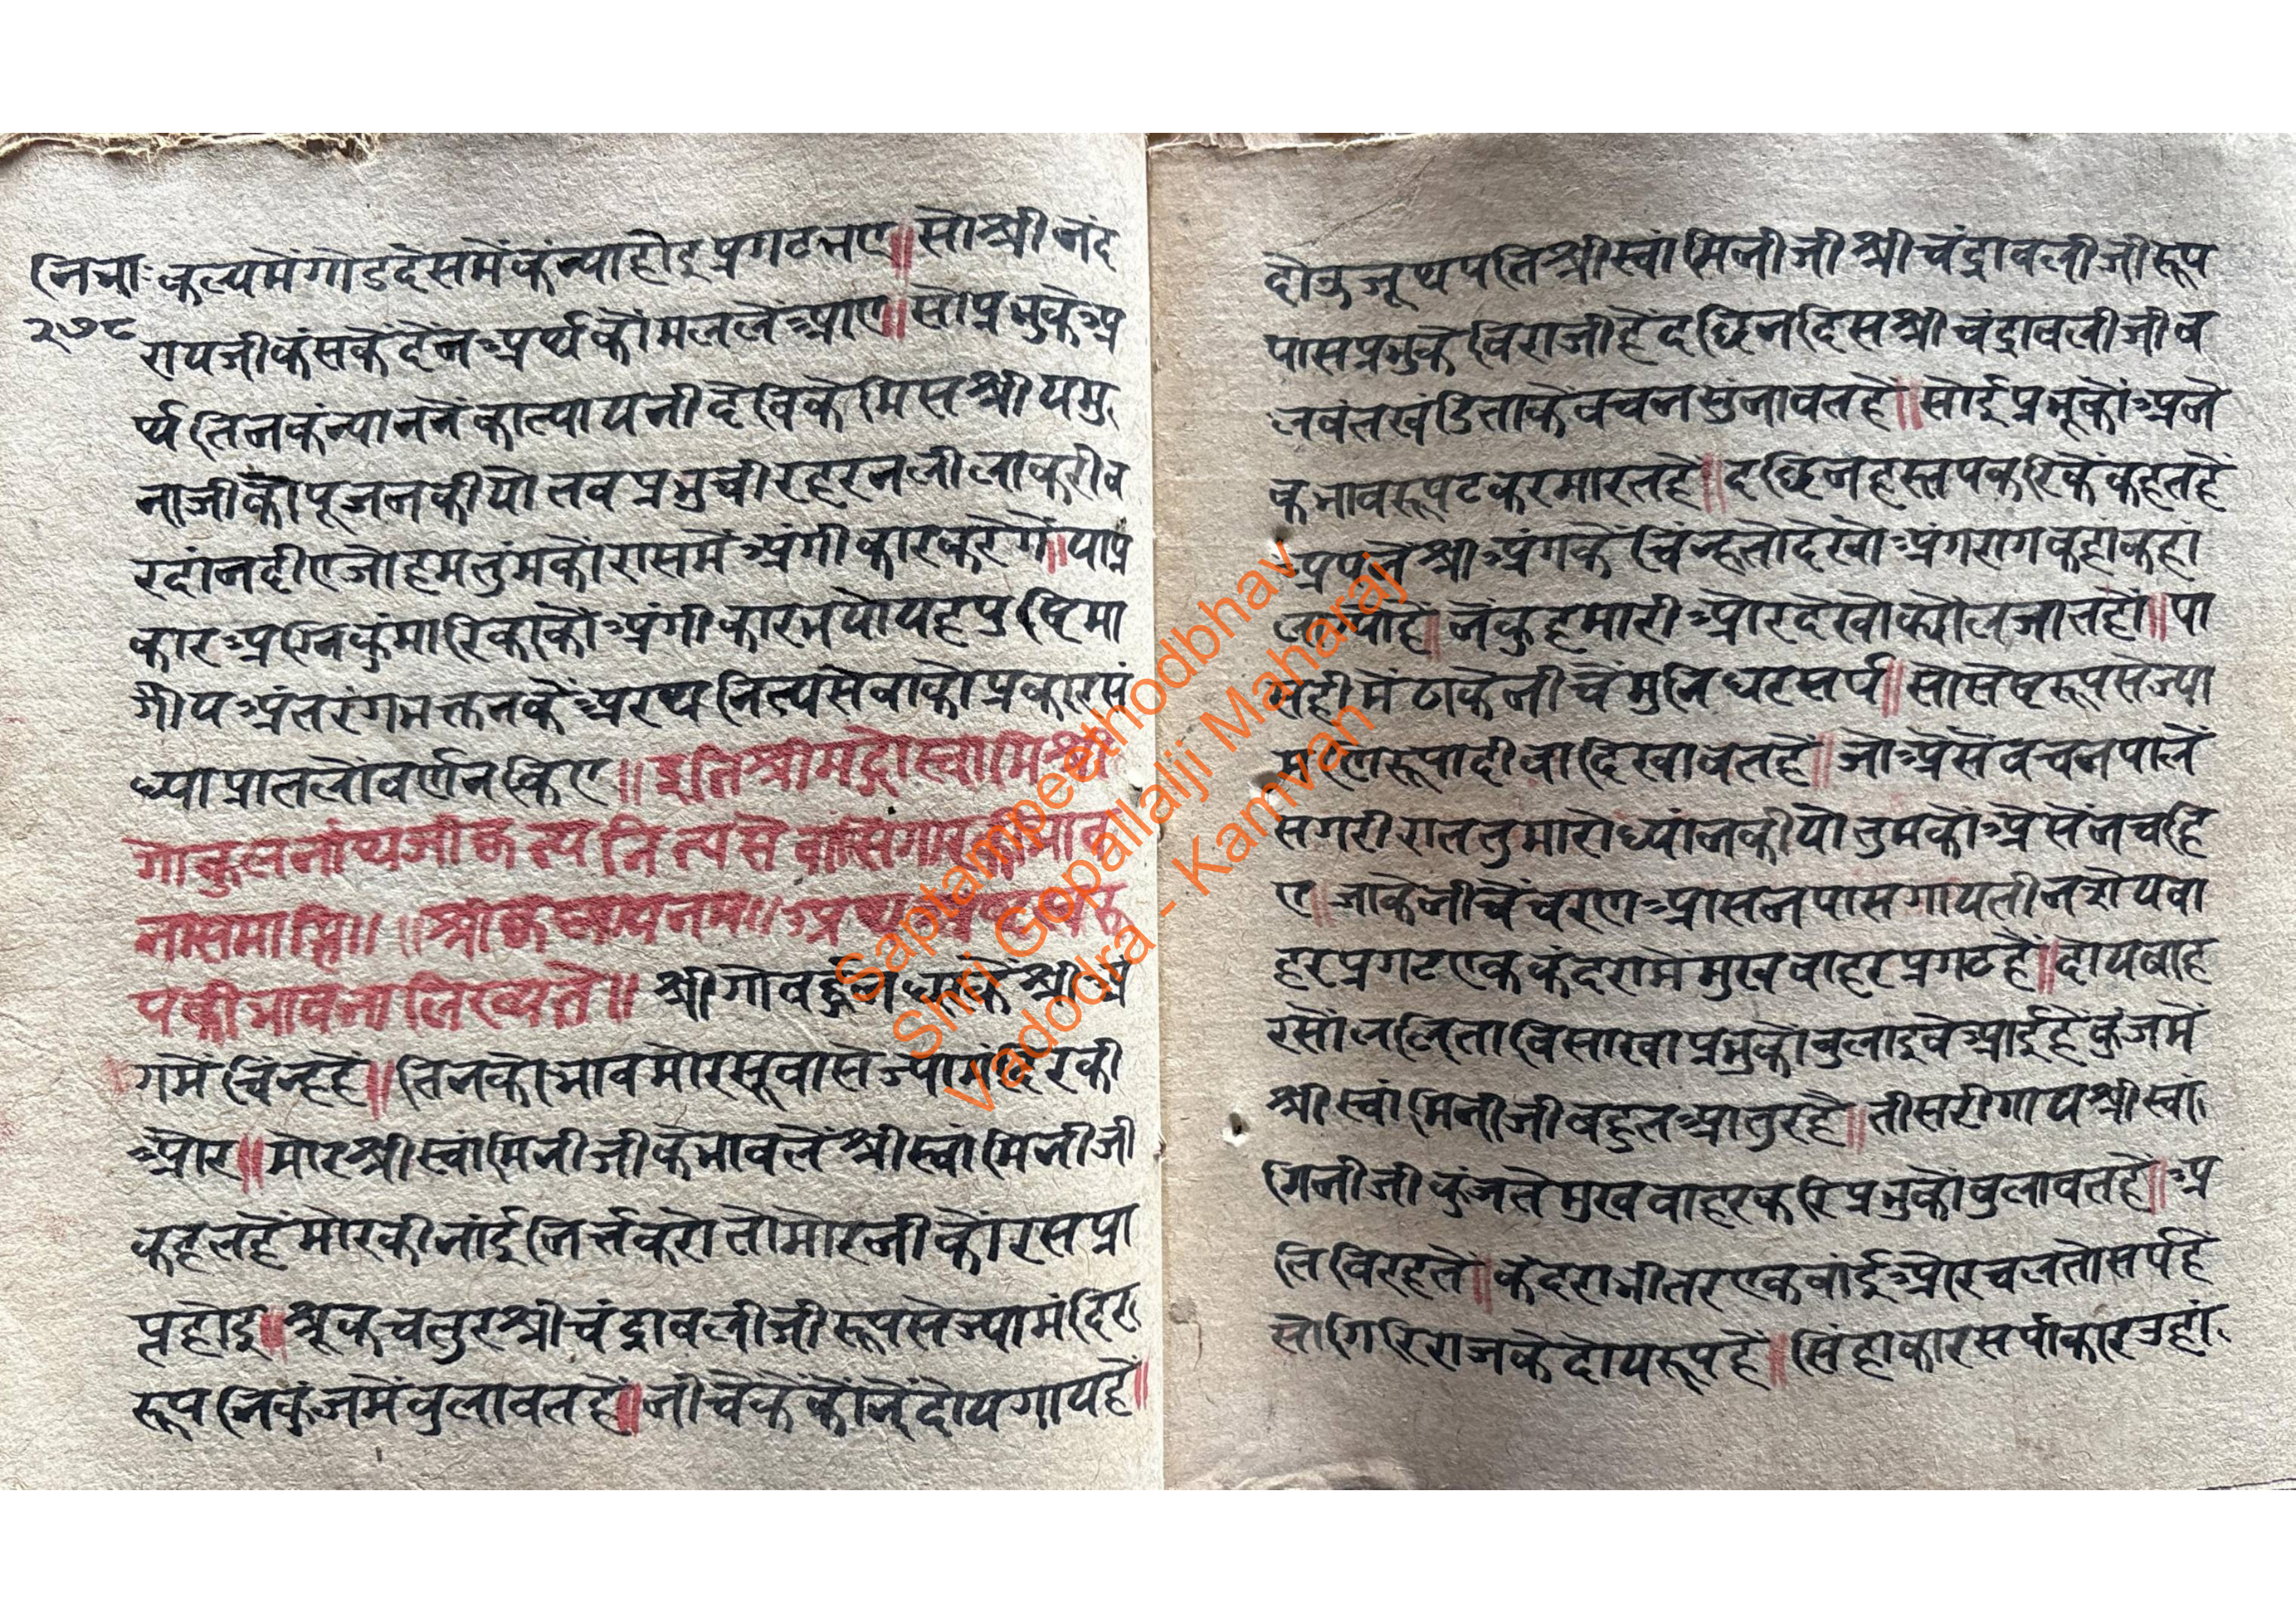 नित्रा॰ कल्पमेंगोडदेसमेंकंन्याहोइप्रगटभए॥सोश्रीनंद
२७८
रायजीकंसकेंदेंनअर्थकौमललेंआए॥सोप्रभुकेअ
र्थतिनकंन्याननेंकात्यायनीदेविकेमिसश्रीयमु
नाजीकौपूजनकीयोतवप्रभुचीरहरनलीलाकरीव
रदांनदीएजोहमतुंमकोंरासमेंअंगीकारकरेंगे॥याप्र
कारअग्निकुंमारिकाकोंअंगीकारभयोयहपुष्टिमा
र्गीयअंतरंगभक्तनकेंअरथनित्यसेवाकोप्रकारसं
ध्याप्रातलोंवर्णनकिए॥इतिश्रीमद्गोस्वामिश्री
गोकुलनांथजीकृत्यनित्यसेवासिंगारकीभाव
नासमाप्ति॥ ॥श्रीकृष्णायनमः॥अथ
पकीभावनालिख्यते॥ श्रीगोवर्द्धनधरकेंश्रीअं
गमेंचिंन्हहें॥तिनकोभावमोरसूवासेज्यामंदिरकी
ओर॥मोरश्रीस्वांमिनीजीकेभावलेंश्रीस्वांमिनीजी
कहतहेंमोरकीनांईनिर्त्तकरोतोमोरनीकोंरसप्रा
प्तहोइ॥श्रूकचतुरश्रीचंद्रावलीजीरूपसेज्यामंदिर
रूपनिकुंजमेंवुलावतहे॥नीचेकेंकोंनेंदोयगायहें॥
दोऊजूथपतिश्रीस्वांमिनीजीश्रीचंद्रावलीजीरूप
पासप्रभुकेविराजीहेंदछिनदिसश्रीचंद्रावलीजीव
लवंतखंडिताकेवचनसुंनावतहे॥सोईप्रभूकोंअने
कभावरूपटकरमारतहे॥दछिनहस्तपकरिकेंकहतहें
अपनेंश्रीअंगकेंचिंन्हतोदेखोअंगरागकहांकहां
लग्योहे॥नेंकुहमारीओरदेखोक्योंलजातहों॥पा
सेहीमेंठाकेनीचेंमुनिघटसर्प॥सोसेषरूपसेज्या
मणिरूपादीवादिखावतहें॥जोअैसेंवचनपालें
सगरीराततुमारोध्यांनकीयोतुमकोंअैसेंनचहि
ए॥जाकेनीचेंचरणआसनपासगायतीनदोयवा
हरप्रगटएककंदरामेंमुखवाहरप्रगटहे॥दोयबाह
रसोंललिताविसाखाप्रभुकोंवुलाइवेआईहेंकुंजमें
श्रीस्वांमिनीजीबहुतआतुरहे॥तीसरीगायश्रीस्वां
मिनीजीकुंजतेमुखवाहरकरिप्रभुकोंवुलावतहे॥अ
तिविरहतें॥कंदराभीतरएकवांईओरचलतोसर्पहे
सोगिरिराजकेदोयरूपहें॥सिंहाकारसर्पाकारजहां
Saptampeethodbhav
Shri Gopallalji Maharaj
Vadodra - Kamvan